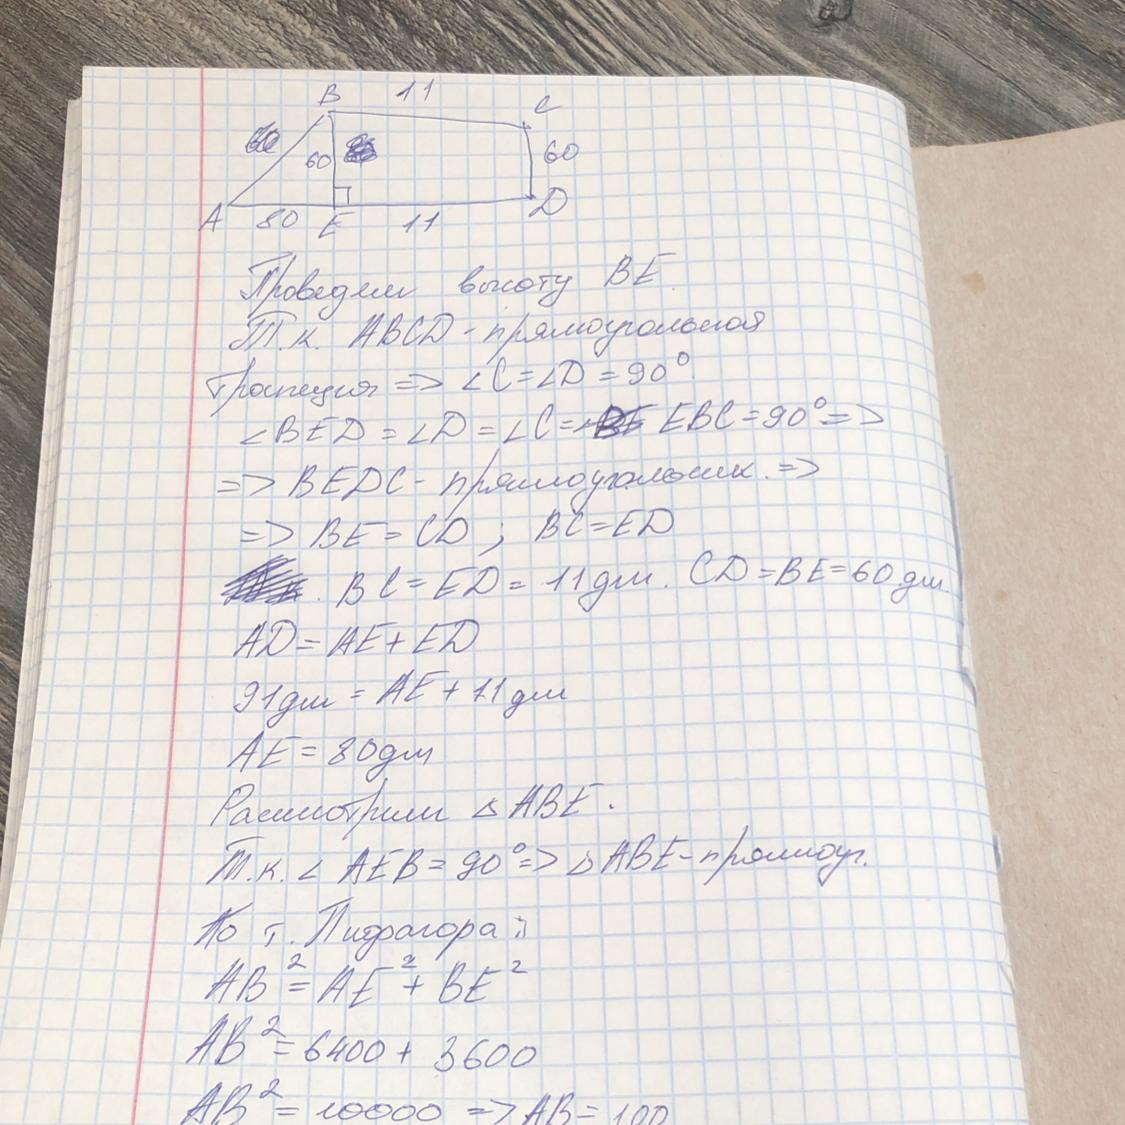 B 11 C
60 60
A 80 E 11 D
Проведем высоту BE.
Т.к. ABCD - прямоугольная
трапеция => ∠C = ∠D = 90°.
∠BED = ∠D = ∠C = EBC = 90° =>
=> BEDC - прямоугольник. =>
=> BE = CD ; BC = ED
BC = ED = 11 дм. CD = BE = 60 дм.
AD = AE + ED
91 дм = AE + 11 дм
AE = 80 дм
Рассмотрим △ ABE.
Т.к. ∠ AEB = 90° => △ ABE - прямоуг.
По т. Пифагора:
AB² = AE² + BE²
AB² = 6400 + 3600
AB² = 10000 => AB = 100